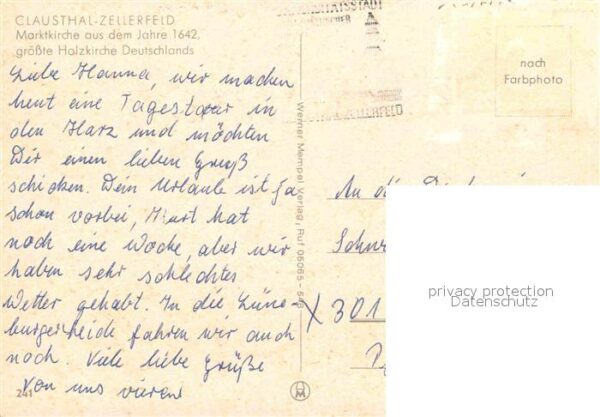 CLAUSTHAL-ZELLERFELD
Marktkirche aus dem Jahre 1642,
größte Holzkirche Deutschlands
Liebe Hanna, wir machen
heut eine Tagestour in
den Harz und möchten
Dir einen lieben Gruß
schicken. Dein Urlaub ist ja
schon vorbei, Kurt hat
noch eine Woche, aber wir
haben sehr schlechtes
Wetter gehabt. In die Lüne-
burgerheide fahren wir auch
noch. Viele liebe Grüße
von uns vieren
241
Werner Mempel Verlag, Ruf 05065-548
nach
Farbphoto
An die
X 301
privacy protection
Datenschutz